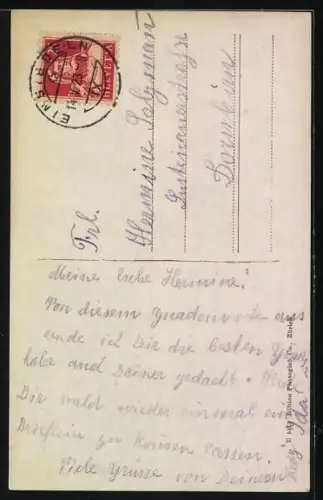 EINSIEDELN
HELVETIA
Frl.
Hermine Salzmann
Lustenauerstraße
Dornbirn
Meine liebe Hermine!
Von diesem Gnadenorte aus
sende ich Dir die besten Grüße
habe auch Deiner gedacht.
Dir bald wieder einmal ein
Brieflein zu kommen lassen.
Viele Grüsse von Deinem
Ida
Edition Photoglob Co., Zürich